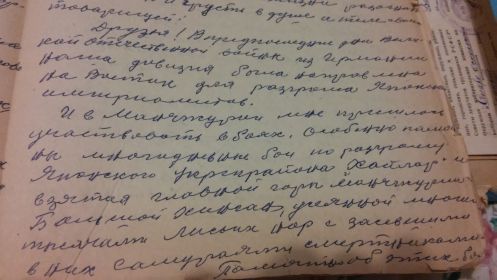 и грусти в душе и
товарищей!
Друзья! В предпоследние дни Вели-
кой отечественной войны из Германии
наша дивизия была направлена
на Восток для разгрома Японских
империалистов.
И в Манчжурии мне пришлось
участвовать в боях. Особенно памят-
ны многодневные бои по разгрому
Японского укрепрайона Хайлар и
взятая главной горы Манчжурии
Большой Хинган, усеянной много
тысячами лисьих нор с засевшими
в них самураями смертниками
Память об этих бо